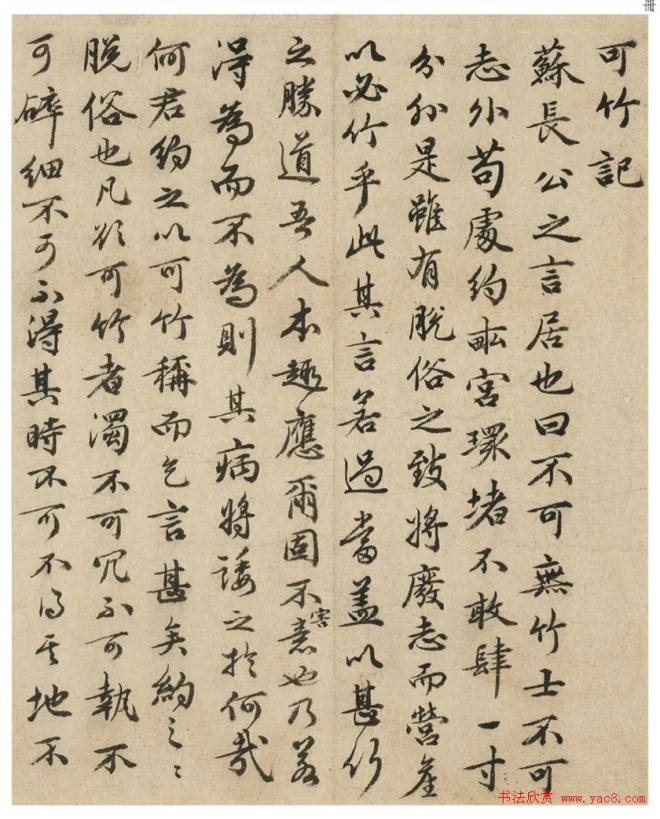 冊
可竹記
蘇長公之言居也曰不可無竹士不可
志外苟處約畝宮環堵不敢肆一寸
分外是雖有脫俗之致將廢志而營產
以必竹乎此其言若過當蓋以甚竹
之勝道吾人本趣應爾固不害意也乃若
得為而不為則其病將諉之於何哉
何君約之以可竹稱而乞言甚矣約之〻
脫俗也凡欲可竹者濁不可冗不可執不
可碎細不可不得其時不可不得其地不
书法欣赏 www.yac8.com